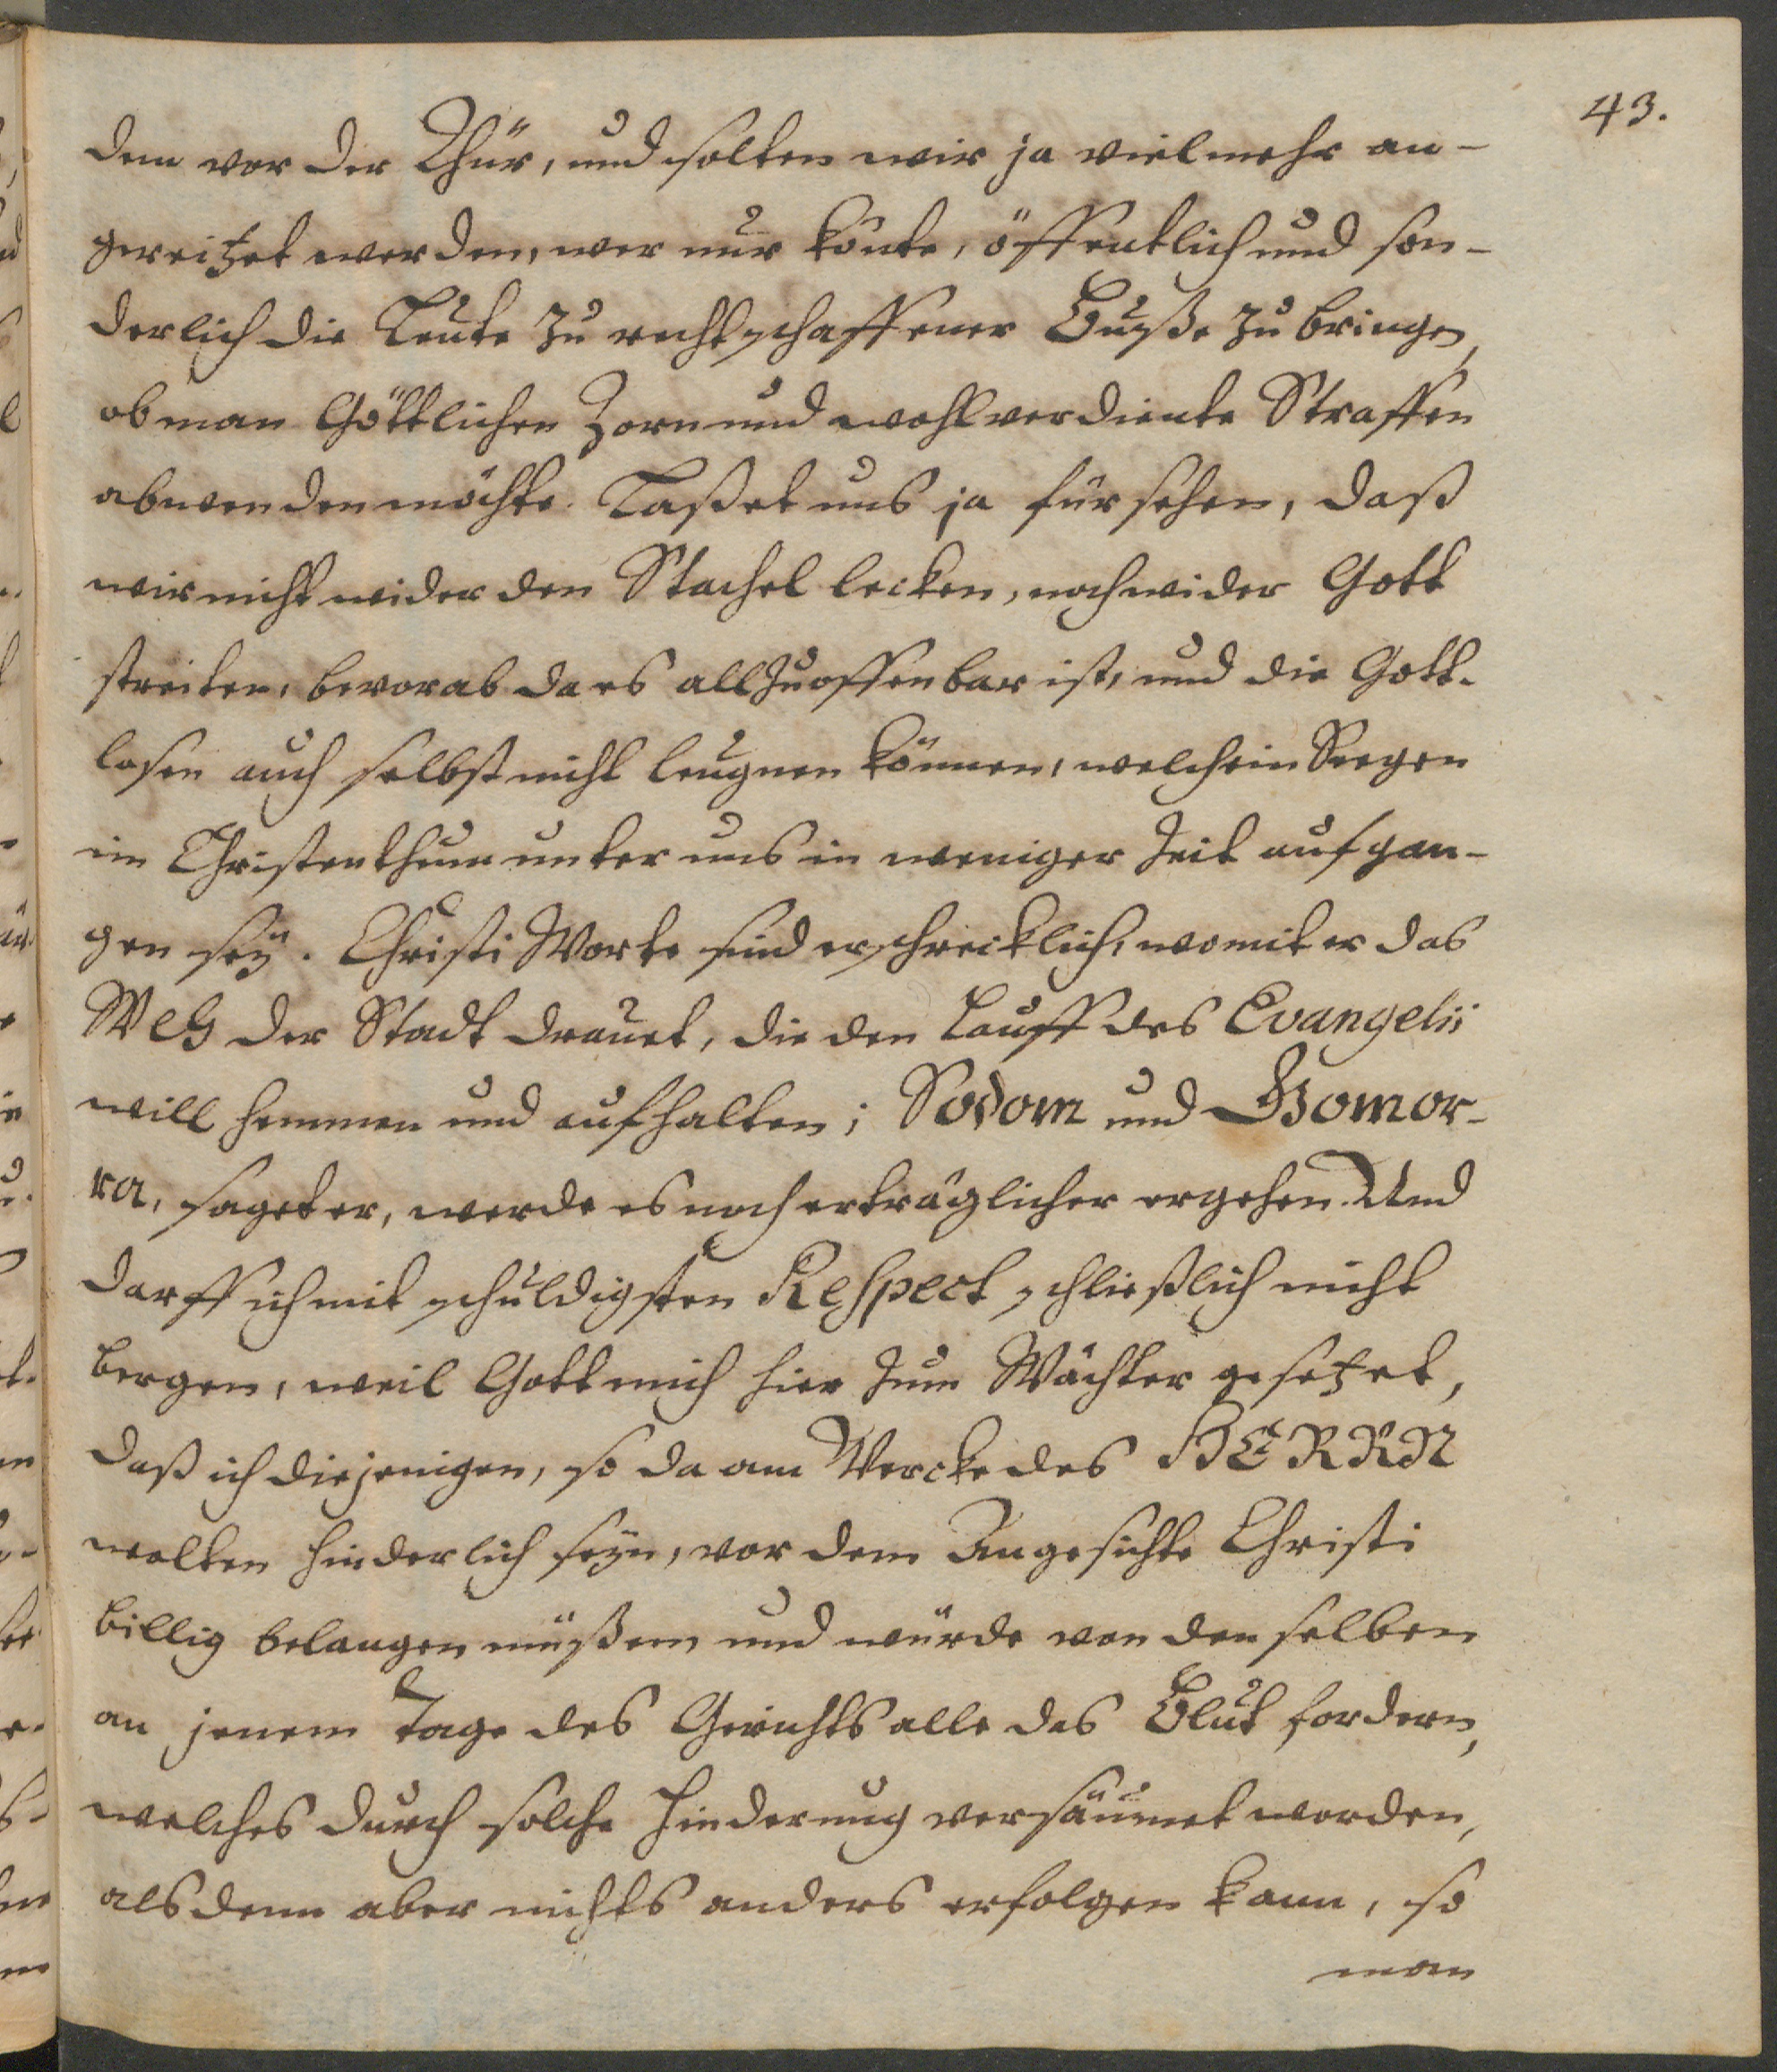 43.
dem vor der Thür, und solten wir ja vielmehr an-
gereitzet werden, wer nur könte, öffentlich und son-
derlich die Leute zu rechtschaffener Buße zu bringen,
ob man Göttlichen Zorn und wohlverdiente Straffen
abwenden möchte. Laßet uns ja fürsehen, daß
wir nicht wider den Stachel lecken, noch wider Gott
streiten, bevorab da es allzuoffenbar ist, und die Gott-
losen auch selbst nicht leugnen können, welch ein Seegen
im Christenthum unter uns in weniger Zeit aufgan-
gen seÿ. Christi Worte sind erschrecklich, womit er das
Weh der Stadt drauet, die den Lauff des Evangelii
will hemmen und aufhalten; Sodom und Gomor-
ra, saget er, werde es noch erträglicher ergehen. Und
darff ich mit schuldigsten Respect schließlich nicht
bergen, weil Gott mich hier zum Wächter gesetzet,
daß ich diejenigen, so da am Wercke des HERRN
wolten hinderlich seÿn, vor dem Angesichte Christi
billig belangen müßen, und würde von denselben
an jenem Tage des Gerichts alle das Blut fordern,
welches durch solche Hinderung versäumet worden,
alsdenn aber nichts anders erfolgen kann, so
man